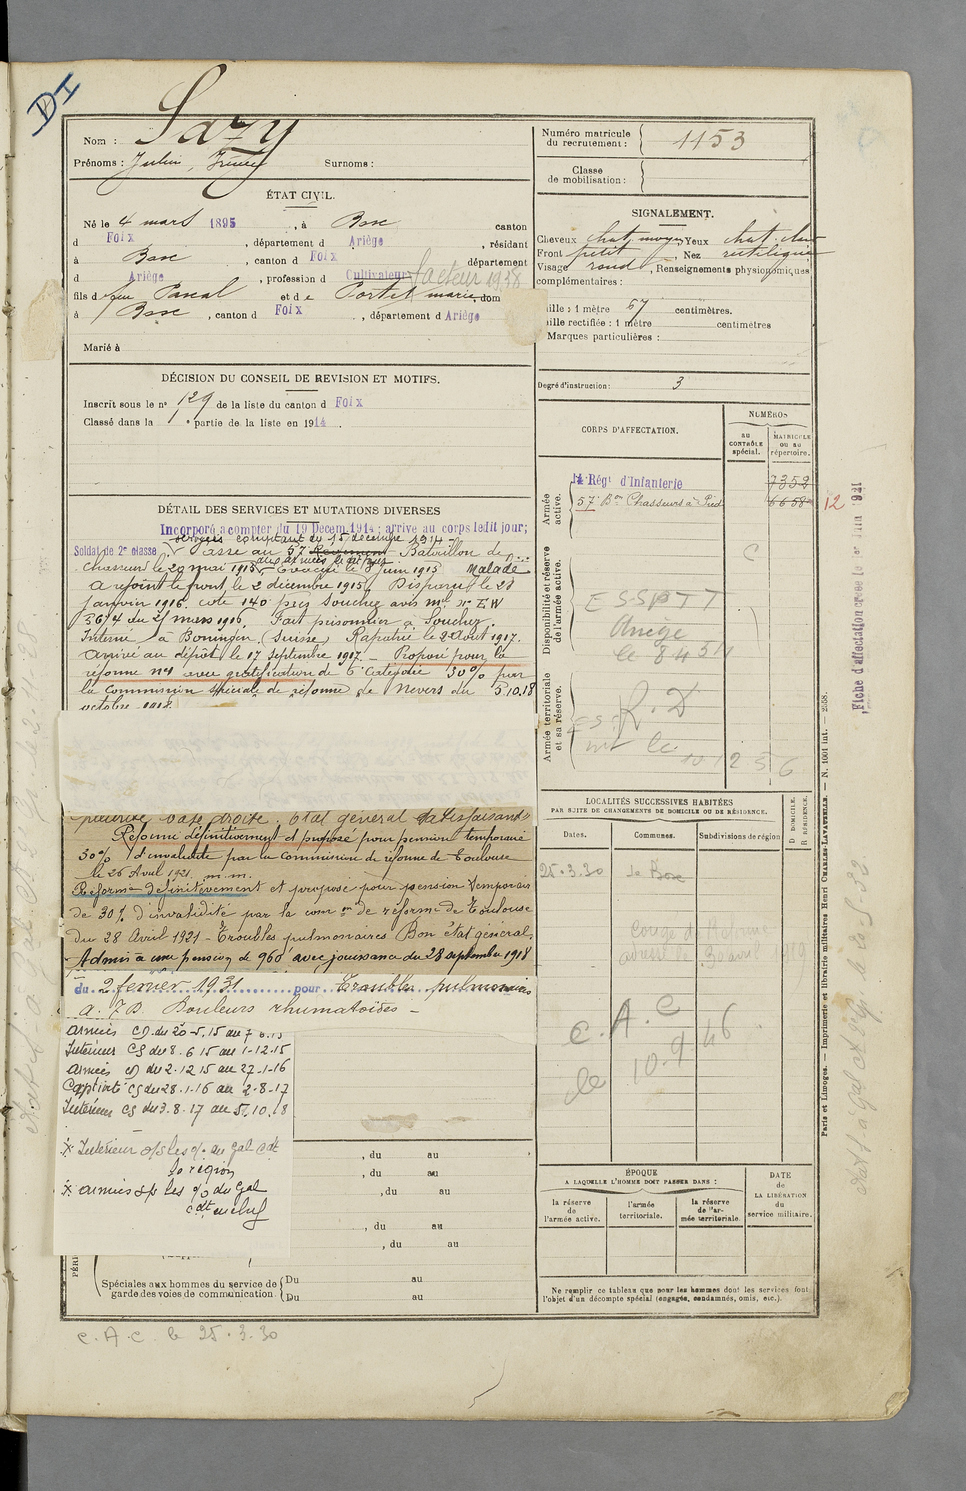 DI
Nom : Sazy
Prénoms : Julien, Surnoms :
Numéro matricule du recrutement : 1153
Classe de mobilisation :
ÉTAT CIVIL.
Né le 4 mars 1895, à Bosc canton
d Foix, département d Ariège, résidant
à Bosc, canton d Foix département
d Ariège, profession d Cultivateur facteur 1918
fils de feu Pascal et de Portet Marie, dom
à Bosc, canton d Foix, département d Ariège
Marié à
SIGNALEMENT.
Cheveux chat. moyen Yeux chat. clair
Front petit, Nez rectiligne
Visage rond, Renseignements physionomiques
complémentaires :
aille : 1 mètre 67 centimètres.
aille rectifiée : 1 mètre centimètres
Marques particulières :
Degré d'instruction : 3
DÉCISION DU CONSEIL DE REVISION ET MOTIFS.
Inscrit sous le n° 129 de la liste du canton d Foix
Classé dans la e partie de la liste en 1914.
DÉTAIL DES SERVICES ET MUTATIONS DIVERSES
Incorporé à compter du 19 Décem. 1914; arrive au corps ledit jour;
services comptant du 15 décembre 1914.
Soldat de 2e classe Passé au 57e Régiment Bataillon de
Chasseurs le 20 mai 1915 aux armées le dit jour Évacué le 8 juin 1915 malade
A rejoint le front le 2 décembre 1915. Disparu le 28
janvier 1916. cote 140 près Souchez avis mel n° EW
3614 du 25 mars 1916. Fait prisonnier à Souchez.
Interné à Boningen (Suisse) Rapatrié le 2 Août 1917.
Arrivé au dépôt le 17 Septembre 1917. Proposé pour la
réforme n°1 avec gratification de 6e catégorie 30% par
la Commission spéciale de réforme de Nevers du 5.10.18
octobre 1918.
base droite. État général satisfaisant
Réformé définitivement et proposé pour pension temporaire
30% d'invalidité par la Commission de réforme de Toulouse
le 26 Avril 1921. m.m.
Réformé définitivement et proposé pour pension temporaire
de 30% d'invalidité par la comon de réforme de Toulouse
du 28 Avril 1921 - Troubles pulmonaires Bon état général,
Admis à une pension de 960 avec jouissance du 28 septembre 1918
du 2 fevrier 1931 pour Troubles pulmonaires
Douleurs rhumatoïdes -
Armées CD du 20-5.15 au 7.6.15
Intérieur CS du 8.6.15 au 1-12-15
Armées CD du 2.12.15 au 27-1-16
Captivité CS du 28.1-16 au 2-8-17
Intérieur CS du 3.8.17 au 5.10.18
Intérieur o/s les o/. du Gal Cdt
la région
Armées s/s les o/o du Gal
cdt en chef
, du au
, du au
, du au
, du au
, du au
PÉRI
Spéciales aux hommes du service de garde des voies de communication. Du au
Du au
C.A.C. le 25.3.30
CORPS D'AFFECTATION.
NUMÉROS
AU CONTRÔLE spécial.
MATRICULE OU AU répertoire.
Armée active.
14e Régt d'Infanterie 7352
57e Bon Chasseurs à Pied 6658 12
Disponibilité et réserve de l'armée active.
C
ESSPTT
Ariège
le 8 4 5
Armée territoriale et sa réserve.
R.D
le 10 12 5 6
LOCALITÉS SUCCESSIVES HABITÉES
PAR SUITE DE CHANGEMENTS DE DOMICILE OU DE RÉSIDENCE.
Dates. Communes. Subdivisions de région
D DOMICILE. R RÉSIDENCE.
25.3.30 Le Bosc
Congé de Réforme
30 avril 1919
C.A.C
le 10.9 46
ÉPOQUE
A LAQUELLE L'HOMME DOIT PASSER DANS :
la réserve de l'armée active.
l'armée territoriale.
la réserve de l'armée territoriale.
DATE de LA LIBÉRATION du service militaire.
Ne remplir ce tableau que pour les hommes dont les services font
l'objet d'un décompte spécial (engagés, condamnés, omis, etc.).
Paris et Limoges. — Imprimerie et librairie militaires Henri CHARLES-LAVAUZELLE. — N. 1001 int. — 2358.